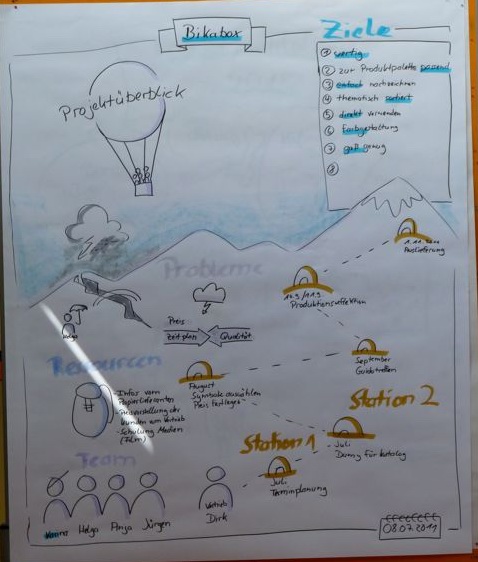 Bikabox
Ziele
Projektüberblick
① wertig
② zur Produktpalette passend
③ einfach nachzeichnen
④ thematisch sortiert
⑤ direkt verwenden
⑥ Farbgestaltung
⑦ groß genug
⑧
Auslieferung
Probleme
Produktionsreflektion
Preis
Zeitplan
Qualität
Helga
Ressourcen
- Infos vom
Papierlieferanten
der
Kunden am Vertrieb
- Schulung Medien
(Film)
August
Symbole auswählen
Preis festlegen
September
Station 2
Station 1
Juli
Dummy für Katalog
Juli
Terminplanung
Team
Helga
Anja
Jürgen
Vertrieb
Dirk
08.07.2011